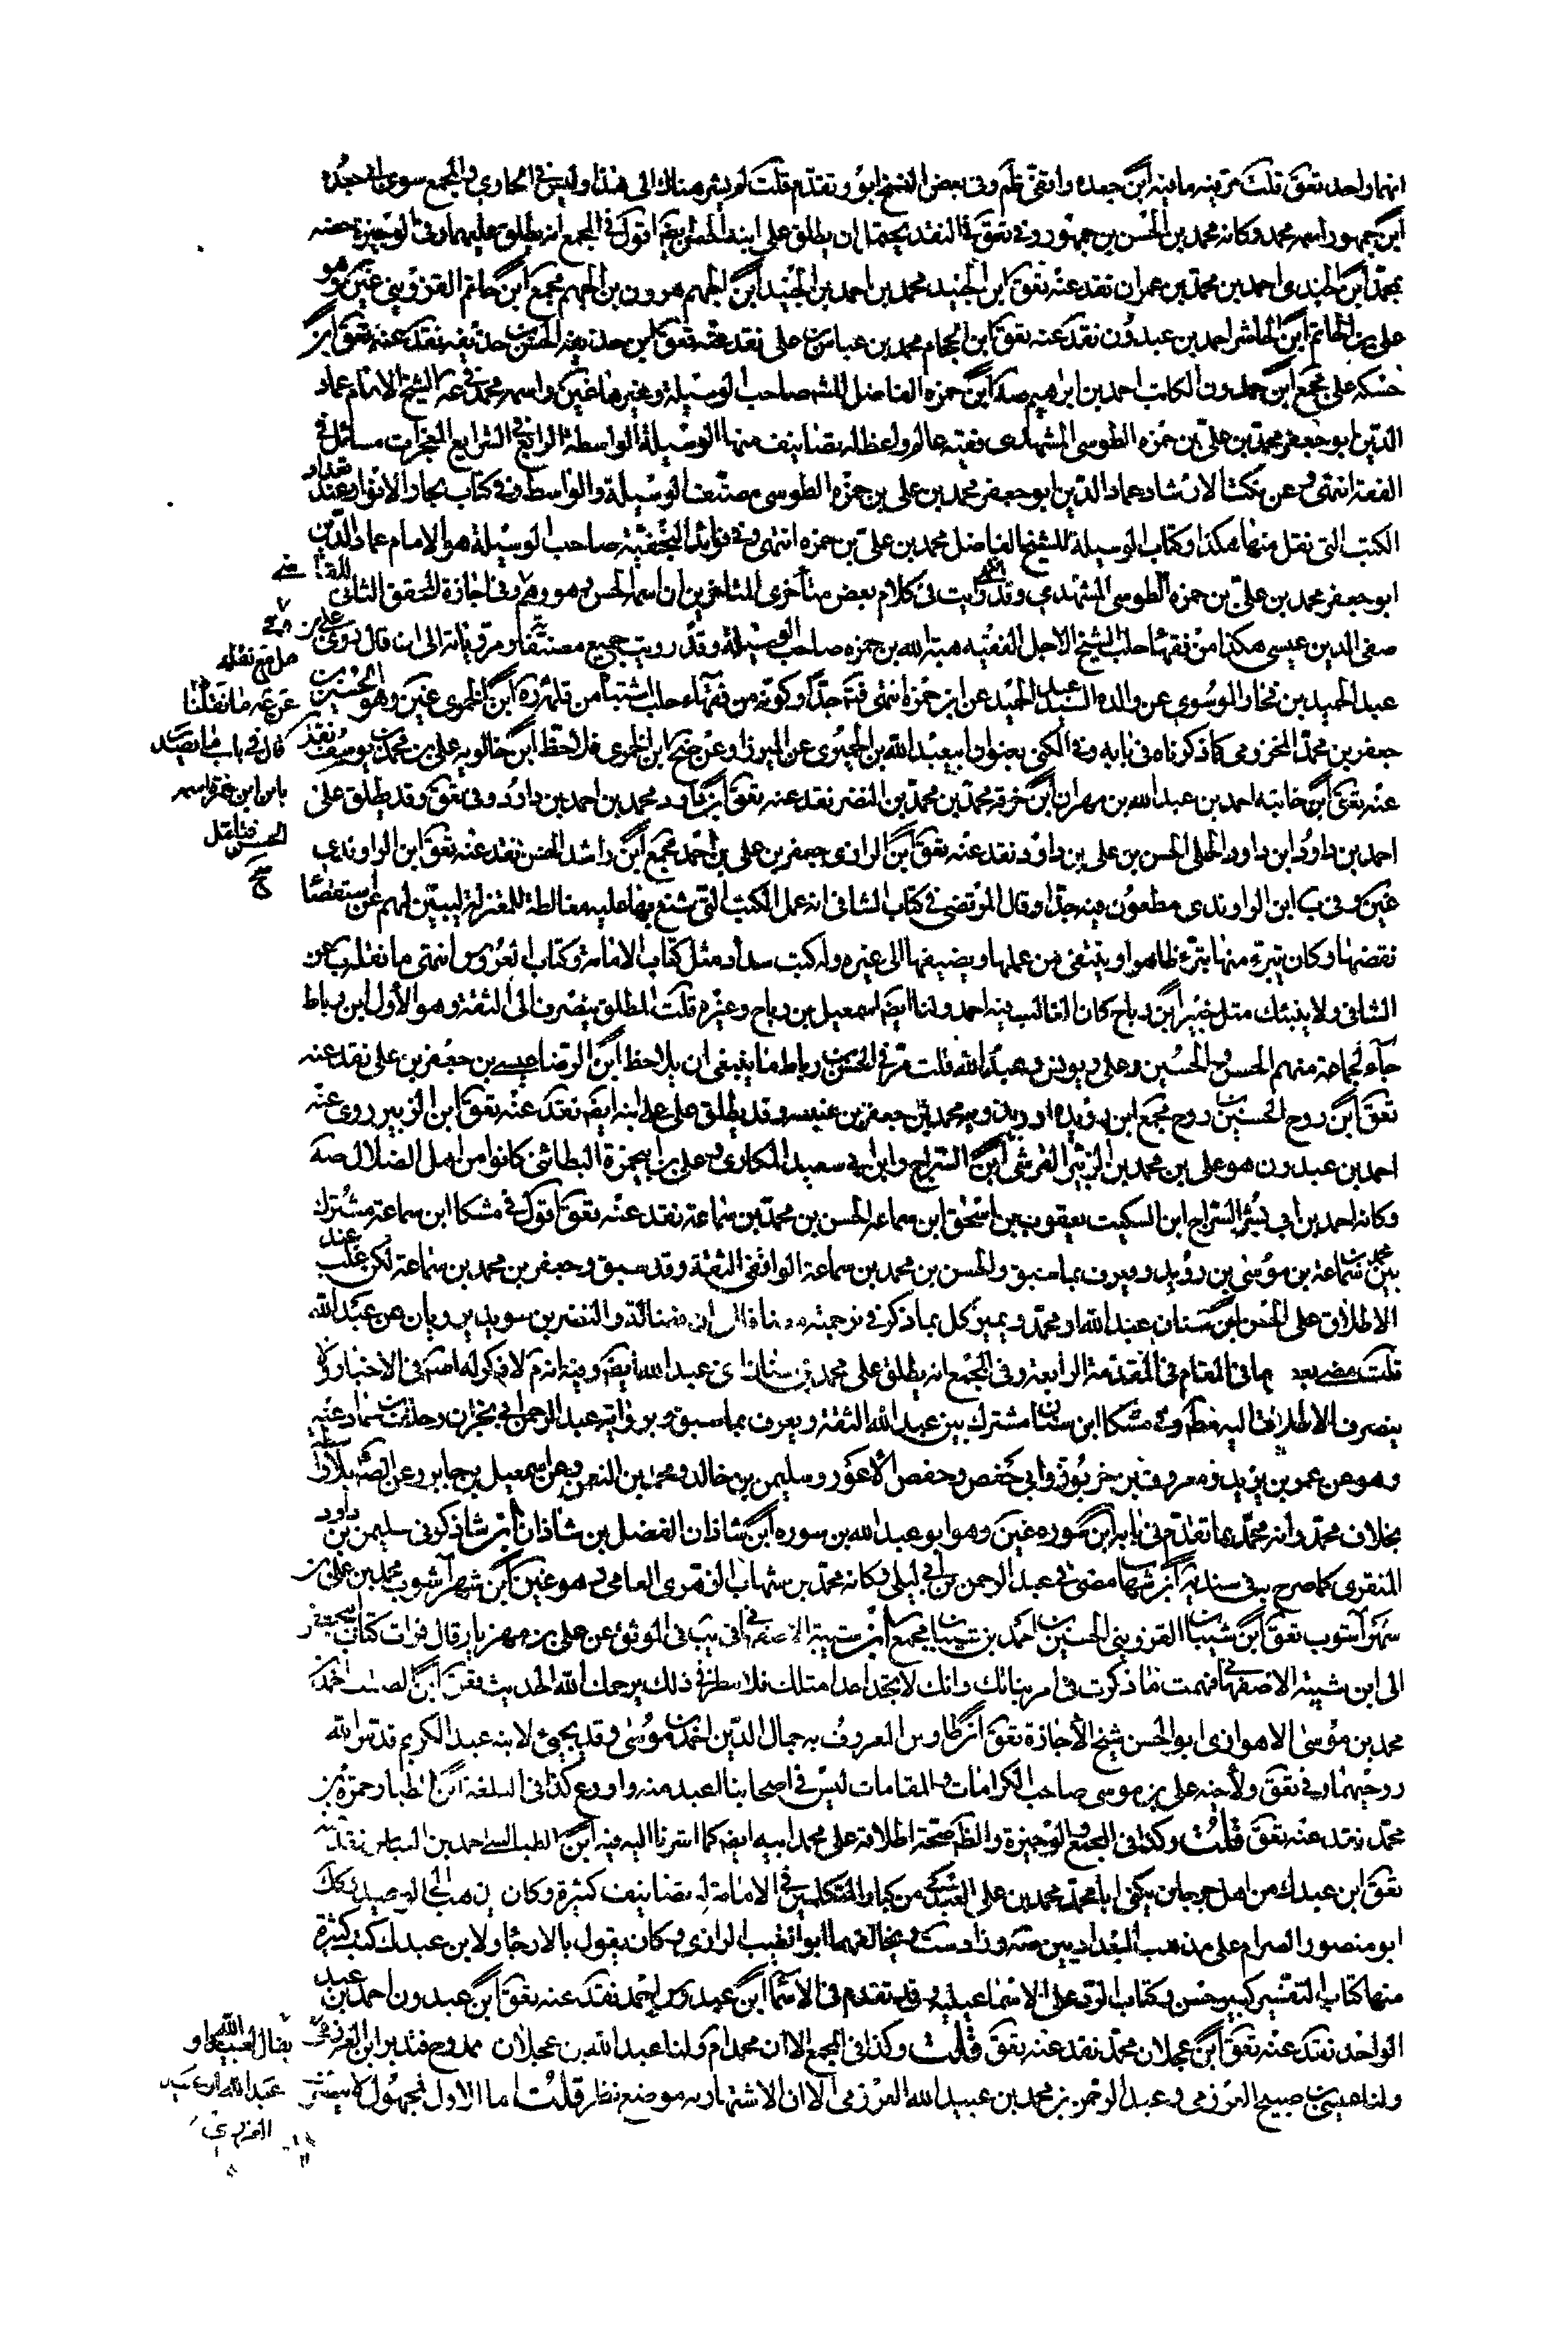 انهما واحد تعق قلت مر فيه ما فيه ابن جعده واقفى ظم وفى بعض النسخ ابو وتقدم قلت لم يشر هناك الى هذا وليس فى الحاوي والمجمع سوى ابن جعده
ابن جمهور اسمه محمد وكانه محمد بن الحسن بن جمهور وفى تعق فى النقد يحتمل ان يطلق على ابنه الحسن ايضا اقول فى المجمع انه يطلق عليهما وفى الوجيزة خصه
بمحمد ابن الجندى احمد بن محمد بن عمران نقد عنه تعق ابن الجنيد محمد بن احمد بن الجنيد ابن الجهم هرون بن الجهم مجمع ابن حاتم القزوينى غين وهو
على بن حاتم ابن الحاشر احمد بن عبدون نقد عنه تعق ابن الحجام محمد بن عباس بن على نقد عنه تعق ابن حذيفه الحسن بن حذيفه نقد عنه تعق ابن
خسكه على مجمع ابن حمدون الكاتب احمد بن ابراهيم صه ابن حمزه الفاضل للشه صاحب الوسيلة وغيرها غين واسمه محمد فى عه الشيخ الامام عماد
الدين ابو جعفر محمد بن على بن حمزه الطوسى المشهدى فقيه عالم واعظ له تصانيف منها الوسيلة الواسطة الرايع فى الشرايع المعجزات مسائل فى
الفقه انتهى وعن نكت الارشاد عماد الدين ابو جعفر محمد بن على بن حمزه الطوسى مصنف الوسيلة والواسطة وفى كتاب بحار الانوار عند تعداد
الكتب التى نقل منها هكذا وكتاب الوسيلة للشيخ الفاضل محمد بن على بن حمزه انتهى وفى فوائد النجفية صاحب الوسيلة هو الامام عماد الدين
ابو جعفر محمد بن على بن حمزه الطوسى المشهدي وقد رأيت فى كلام بعض متأخرى المتاخرين ان اسمه الحسن وهو وهم وفى اجازة المحقق الثانى للقاضى
صفى الدين عيسى هكذا من فقهاء حلب الشيخ الاجل الفقيه هبة الله بن حمزه صاحب الوسيلة وقد رويت جميع مصنفاته ومروياته الى ان قال يروى على بن
عبد الحميد بن فخار الموسوي عن والده السيد عبد الحميد عن ابن حمزه انتهى فتأمل جدا وكونه من فقهاء حلب اشتباه من قلمه ره ابن الخمرى غين وهو الحسين بن
جعفر بن محمد المخزومى كما ذكرناه فى بابه وفى الكنى بعنوان ابى عبد الله بن الخمرى عن الميرزا وعن جخ ابن الخمرى فلاحظ ابن خالويه على بن محمد بن يوسف نقد
عنه تعق ابن خانبه احمد بن عبد الله بن مهران ابن خرقه محمد بن محمد بن النضر نقد عنه تعق ابن داود محمد بن احمد بن داود وفى تعق وقد يطلق على
احمد بن داود ابن داود الحلى الحسن بن على بن داود نقد عنه تعق ابن الرازى جعفر بن على بن احمد مجمع ابن راشد الحسن نقد عنه تعق ابن الراوندي
غين وفى ب ابن الراوندى مطعون فيه جدا وقال المرتضى فى كتاب الشافى انه عمل الكتب التى شنع بها عليه مغالطة للمعتزلة ليبين لهم عن استقصاء
نقضها وكان يتبرء منها تبرء ظاهرا وينتفى من عملها ويضيفها الى غيره وله كتب سداد مثل كتاب الامامة وكتاب العروس انتهى ما نقله ب عن
الشافى ولا ينبئك مثل خبير ابن رباح كان الغالب فيه احمد ولنا ايضا اسمعيل بن رباح وغيره قلت المطلق ينصرف الى الثقة وهو الأول ابن رباط
جاء لجماعة منهم الحسن والحسين وعلى ويونس وعبد الله قلت مر فى الحسن بن رباط ما ينبغى ان يلاحظ ابن الرضا عيسى بن جعفر بن على نقد عنه
تعق ابن روح الحسين بن روح مجمع ابن رويده او دويد وهو محمد بن جعفر بن عنبسه وقد يطلق على على ابنه ايضا نقد عنه تعق ابن الزبير روى عنه
احمد بن عبدون هو على بن محمد بن الزبير القرشى ابن السراج وابن ابى سعيد المكارى وعلى بن ابى حمزة البطائنى كانوا من اهل الضلال صه
وكانه احمد بن ابى بشر السراج ابن السكيت يعقوب بن اسحق ابن سماعه الحسن بن محمد بن سماعة نقد عنه تعق اقول فى مشكا ابن سماعة مشترك
بين محمد بن سماعة بن موسى بن رويد ويعرف بما سبق والحسن بن محمد بن سماعة الواقفى الثقة وقد سبق وجعفر بن محمد بن سماعة لكن غلب عند
الاطلاق على الحسن ابن سنان عبد الله او محمد ويميز كل بما ذكر فى ترجمته وفضالة والنضر بن سويد يرويان عن عبد الله
قلت مضى بعد ما فى المقام فى المقدمة الرابعة وفى المجمع انه يطلق على محمد بن سنان اى عبد الله ايضا وفيه انه لا ذكر له اصلا فى الاخبار
ينصرف الاطلاق اليه فظم وفى مشكا ابن سنان مشترك بين عبد الله الثقة ويعرف بما سبق وبرواية عبد الرحمن ابى نجران وحماد عنه
وهو عن عمر بن يزيد ومعروف بن خربوذ وابى حفص وحفص الأعور وسليمن بن خالد ومحمد بن النعمن وعن اسمعيل بن جابر وعن الصم بلا واسطة
بخلاف محمد وانه محمد بما تقدم فى بابه ابن سوره غين وهو ابو عبد الله بن سوره ابن شاذان الفضل بن شاذان ابن شاذكونى سليمن بن داود
المنقرى كما صرح به فى سنديه ابن شهاب مضى فى عبد الرحمن بن ابى ليلى وكانه محمد بن شهاب الزهرى العامى وهو غين ابن شهرآشوب محمد بن على بن
شهرآشوب تعق ابن شيبان القزوينى الحسين بن احمد بن شيبان مجمع ابن شيبة الاصفهانى فى يب فى الموثق عن على بن مهزيار قال قرات كتاب ابى جعفر
الى ابن شيبه الاصفهانى فهمت ما ذكرت فى امر بناتك وانك لا تجد احدا مثلك فلا تنظر فى ذلك يرحمك الله الحديث تعق ابن الصلت احمد
محمد بن موسى الاهوازى ابو الحسن شيخ الأجازة تعق ابن طاوس المعروف به جمال الدين احمد بن موسى وقد يجئ لابنه عبد الكريم قدس الله
روحيهما وفى تعق ولأخيه على بن موسى صاحب الكرامات والمقامات ليس فى اصحابنا اعبد منه واورع كذا فى البلغة ابن الطيار حمزة بن
محمد نقد عنه تعق قلت وكذا فى المجمع والوجيزة والظم صحة اطلاقه على محمد ابيه ايضا كما اشرنا اليه فيه ابن الطيالسى احمد بن العباس نقد عنه
تعق ابن عبدك من اهل جرجان يكنى ابا محمد محمد بن على العبدكى من كبار المتكلمين فى الامامة له تصانيف كثيرة وكان يذهب الى الوعيد وكذلك
ابو منصور الصرام على مذهب البغداديين ويخالفهما ابو الطيب الرازى وكان يقول بالارجاء ولابن عبدك كتب كثيرة
منها كتاب التفسير كبير حسن وكتاب الرد على الاسماعيلية وقد تقدم فى الاسماء ابن عبدوس احمد نقد عنه تعق ابن عبدون احمد بن عبد
الواحد نقد عنه تعق ابن عجلان محمد نقد عنه تعق قلت وكذا فى المجمع الا ان محمدا م ولنا عبد الله بن عجلان ممدوح فتدبر ابن العرزمى
ولنا عيسى بن صبيح العرزمى وعبد الرحمن بن محمد بن عبيد الله العرزمى الا ان الاشتهار به موضع نظر قلت اما الاول فمجهول لا ينصرف
هل مع نقله
عن عه ما نقلنا
قال فى باب ما يصدر
بابن ابن حمزة اسمه
الحسن فتامل
يقال لعبيد الله او
عبد الله بن عبيد
العرزمى